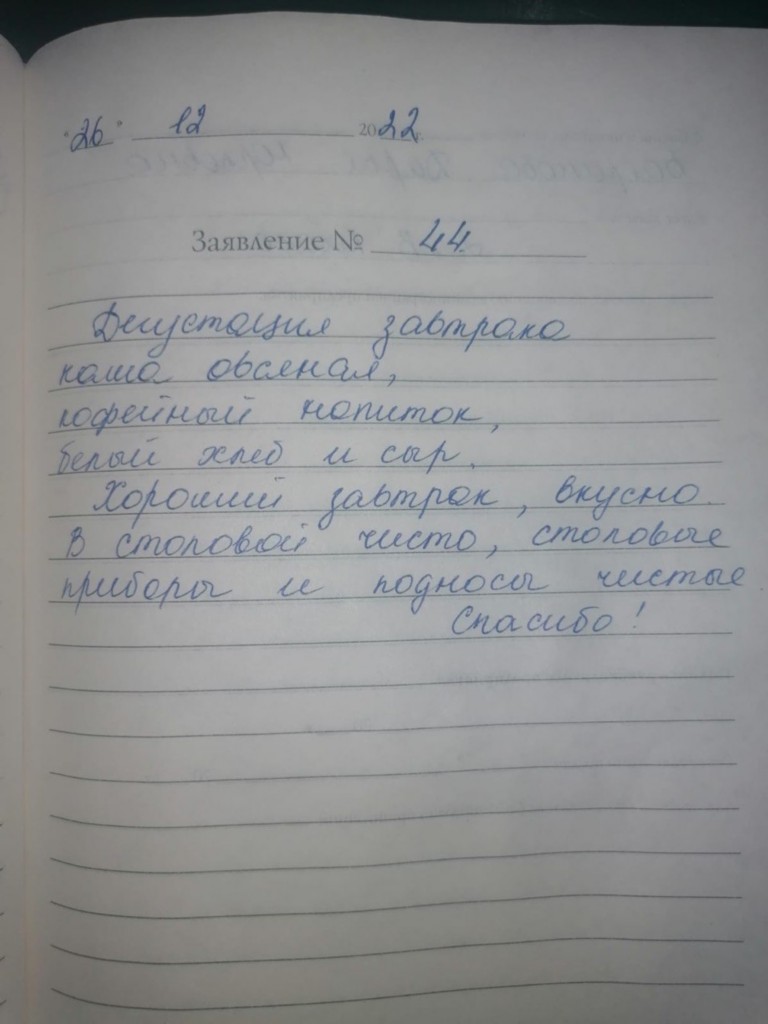 "26" 12 2022г.
Заявление № 44
Дегустация завтрака
каша овсяная,
кофейный напиток,
белый хлеб и сыр.
Хороший завтрак, вкусно.
В столовой чисто, столовые
приборы и подносы чистые
Спасибо!